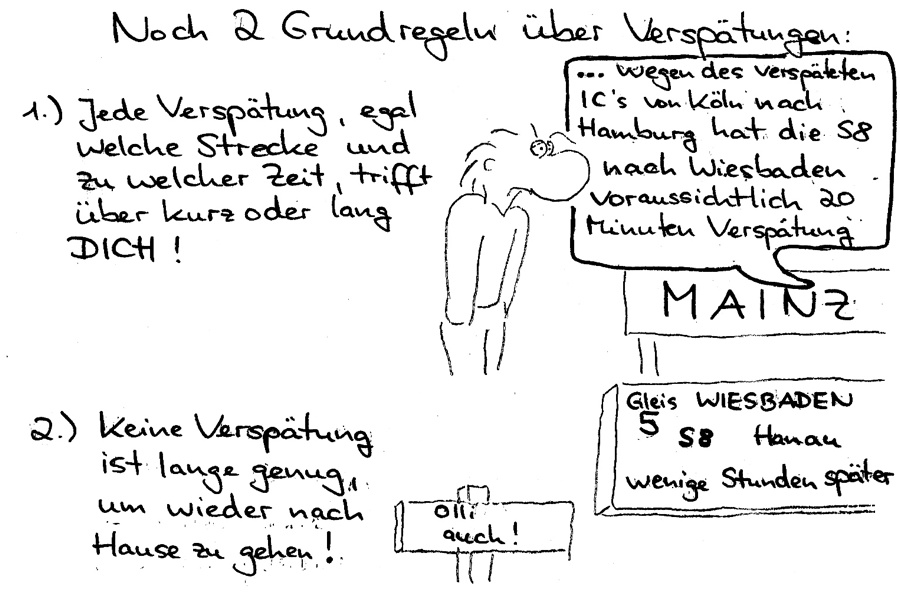 Noch 2 Grundregeln über Verspätungen:
1.) Jede Verspätung, egal
welche Strecke und
zu welcher Zeit, trifft
über kurz oder lang
DICH!
... wegen des verspäteten
IC's von Köln nach
Hamburg hat die S8
nach Wiesbaden
voraussichtlich 20
Minuten Verspätung
MAINZ
Gleis WIESBADEN
5 S8 Hanau
wenige Stunden später
2.) Keine Verspätung
ist lange genug,
um wieder nach
Hause zu gehen!
Olli
auch!